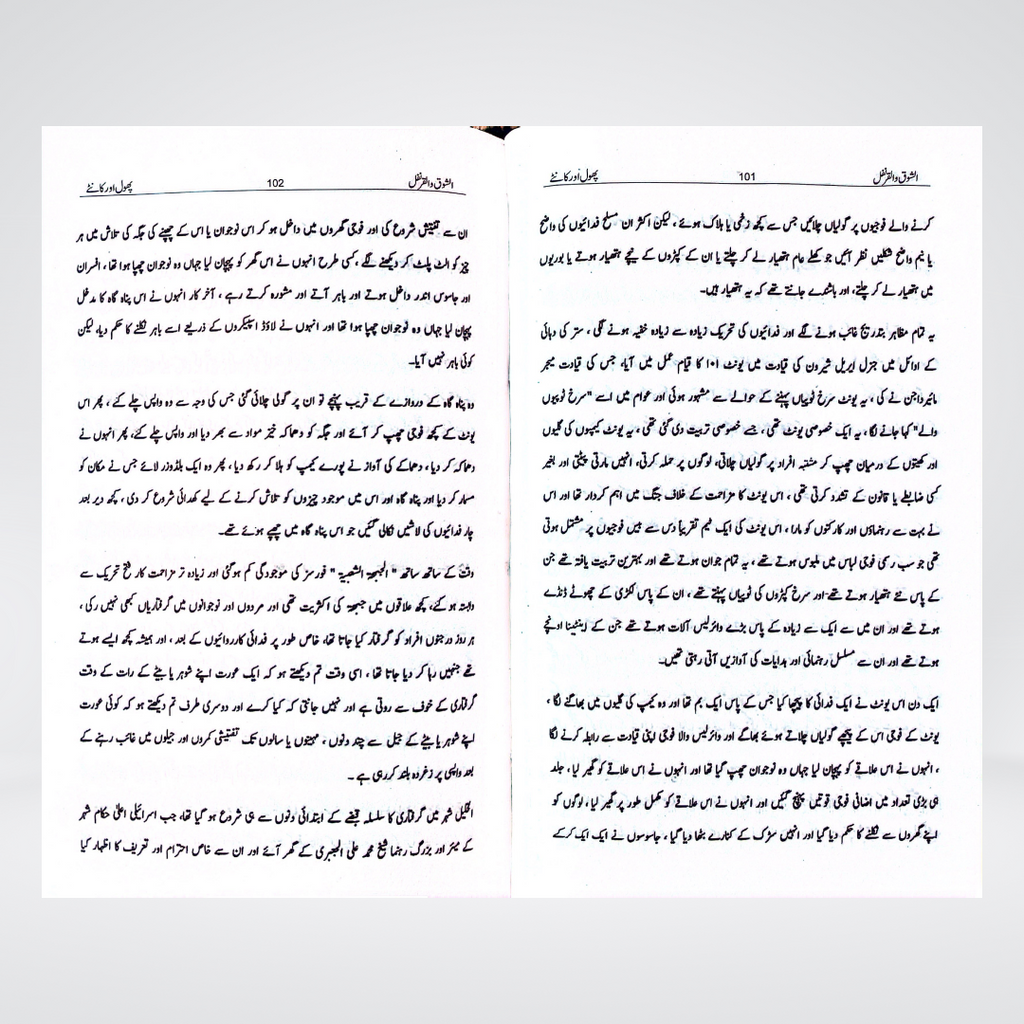 الشوق والقرنفل 101 پھول اور کانٹے
کرنے والے فوجیوں پر گولیاں چلائیں جس سے کچھ زخمی یا ہلاک ہوئے ، لیکن اکثر ان مسلح فدائیوں کی واضح
یا نیم واضح شکلیں نظر آئیں جو کھلے عام ہتھیار لے کر چلتے یا ان کے کپڑوں کے نیچے ہتھیار ہوتے یا بوریوں
میں ہتھیار لے کر چلتے، اور باشندے جانتے تھے کہ یہ ہتھیار ہیں۔
یہ تمام مظاہر بتدریج غائب ہونے لگے اور فدائیوں کی تحریک زیادہ سے زیادہ خفیہ ہونے لگی ، ستر کی دہائی
کے اوائل میں جنرل ایریل شیرون کی قیادت میں یونٹ ۱۰۱ کا قیام عمل میں آیا، جس کی قیادت میجر
مائیر داجن نے کی ، یہ یونٹ سرخ ٹوپیاں پہننے کے حوالے سے مشہور ہوئی اور عوام میں اسے "سرخ ٹوپیوں
والے" کہا جانے لگا، یہ ایک خصوصی یونٹ تھی ، جسے خصوصی تربیت دی گئی تھی ، یہ یونٹ کیمپوں کی گلیوں
اور کھیتوں کے درمیان چھپ کر مشتبہ افراد پر گولیاں چلاتی، لوگوں پر حملہ کرتی، انہیں مارتی پیٹتی اور بغیر
کسی ضابطے یا قانون کے تشدد کرتی تھی ، اس یونٹ کا مزاحمت کے خلاف جنگ میں اہم کردار تھا اور اس
نے بہت سے رہنماؤں اور کارکنوں کو مارا ، اس یونٹ کی ایک ٹیم تقریباً دس سے بیس فوجیوں پر مشتمل ہوتی
تھی جو سب رسمی فوجی لباس میں ملبوس ہوتے تھے ، یہ تمام جوان ہوتے تھے اور بہترین تربیت یافتہ تھے جن
کے پاس نئے ہتھیار ہوتے تھے اور سرخ کپڑوں کی ٹوپیاں پہنتے تھے ، ان کے پاس لکڑی کے چھوٹے ڈنڈے
ہوتے تھے اور ان میں سے ایک سے زیادہ کے پاس بڑے وائرلیس آلات ہوتے تھے جن کے اینٹینا اونچے
ہوتے تھے اور ان سے مسلسل رہنمائی اور ہدایات کی آوازیں آتی رہتی تھیں۔
ایک دن اس یونٹ نے ایک فدائی کا پیچھا کیا جس کے پاس ایک بم تھا اور وہ کیمپ کی گلیوں میں بھاگنے لگا ،
یونٹ کے فوجی اس کے پیچھے گولیاں چلاتے ہوئے بھاگے اور وائرلیس والا فوجی اپنی قیادت سے رابطہ کرنے لگا
، انہوں نے اس علاقے کو پہچان لیا جہاں وہ نوجوان چھپ گیا تھا اور انہوں نے اس علاقے کو گھیر لیا ، جلد
ہی بڑی تعداد میں اضافی فوجی قوتیں پہنچ گئیں اور انہوں نے اس علاقے کو مکمل طور پر گھیر لیا ، لوگوں کو
اپنے گھروں سے نکلنے کا حکم دیا گیا اور انہیں سڑک کے کنارے بٹھا دیا گیا ، جاسوسوں نے ایک ایک کر کے
الشوق والقرنفل 102 پھول اور کانٹے
ان سے تفتیش شروع کی اور فوجی گھروں میں داخل ہو کر اس نوجوان یا اس کے چھپنے کی جگہ کی تلاش میں ہر
چیز کو الٹ پلٹ کر دیکھنے لگے ، کسی طرح انہوں نے اس گھر کو پہچان لیا جہاں وہ نوجوان چھپا ہوا تھا ، افسران
اور جاسوس اندر داخل ہوتے اور باہر آتے اور مشورہ کرتے رہے ، آخر کار انہوں نے اس پناہ گاہ کا مدخل
پہچان لیا جہاں وہ نوجوان چھپا ہوا تھا اور انہوں نے لاؤڈ اسپیکروں کے ذریعے اسے باہر نکلنے کا حکم دیا، لیکن
کوئی باہر نہیں آیا۔
وہ پناہ گاہ کے دروازے کے قریب پہنچے تو ان پر گولی چلائی گئی جس کی وجہ سے وہ واپس چلے گئے ، پھر اس
یونٹ کے کچھ فوجی چھپ کر آئے اور جگہ کو دھماکہ خیز مواد سے بھر دیا اور واپس چلے گئے، پھر انہوں نے
دھماکہ کر دیا ، دھماکے کی آواز نے پورے کیمپ کو ہلا کر رکھ دیا ، پھر وہ ایک بلڈوزر لائے جس نے مکان کو
مسمار کر دیا اور پناہ گاہ اور اس میں موجود چیزوں کو تلاش کرنے کے لیے کھدائی شروع کر دی ، کچھ دیر بعد
چار فدائیوں کی لاشیں نکالی گئیں جو اس پناہ گاہ میں چھپے ہوئے تھے۔
وقت کے ساتھ ساتھ " الجبهة الشعبية " فورسز کی موجودگی کم ہو گئی اور زیادہ تر مزاحمت کار فتح تحریک سے
وابستہ ہو گئے، کچھ علاقوں میں جبہۃ کی اکثریت تھی اور مردوں اور نوجوانوں میں گرفتاریاں کبھی نہیں رکی ،
ہر روز درجنوں افراد کو گرفتار کیا جاتا تھا، خاص طور پر فدائی کارروائیوں کے بعد ، اور ہمیشہ کچھ ایسے ہوتے
تھے جنہیں رہا کر دیا جاتا تھا ، اسی وقت تم دیکھتے ہو کہ ایک عورت اپنے شوہر یا بیٹے کے رات کے وقت
گرفتاری کے خوف سے روتی ہے اور نہیں جانتی کہ کیا کرے اور دوسری طرف تم دیکھتے ہو کہ کوئی عورت
اپنے شوہر یا بیٹے کے جیل سے چند دنوں ، مہینوں یا سالوں تک تفتیشی کمروں اور جیلوں میں غائب رہنے کے
بعد واپسی پر زغردہ بلند کر رہی ہے ۔
الخلیل شہر میں گرفتاری کا سلسلہ قبضے کے ابتدائی دنوں سے ہی شروع ہو گیا تھا، جب اسرائیلی اعلیٰ حکام شہر
کے میئر اور بزرگ رہنما شیخ محمد علی الجعبری کے گھر آئے اور ان سے خاص احترام اور تعریف کا اظہار کیا